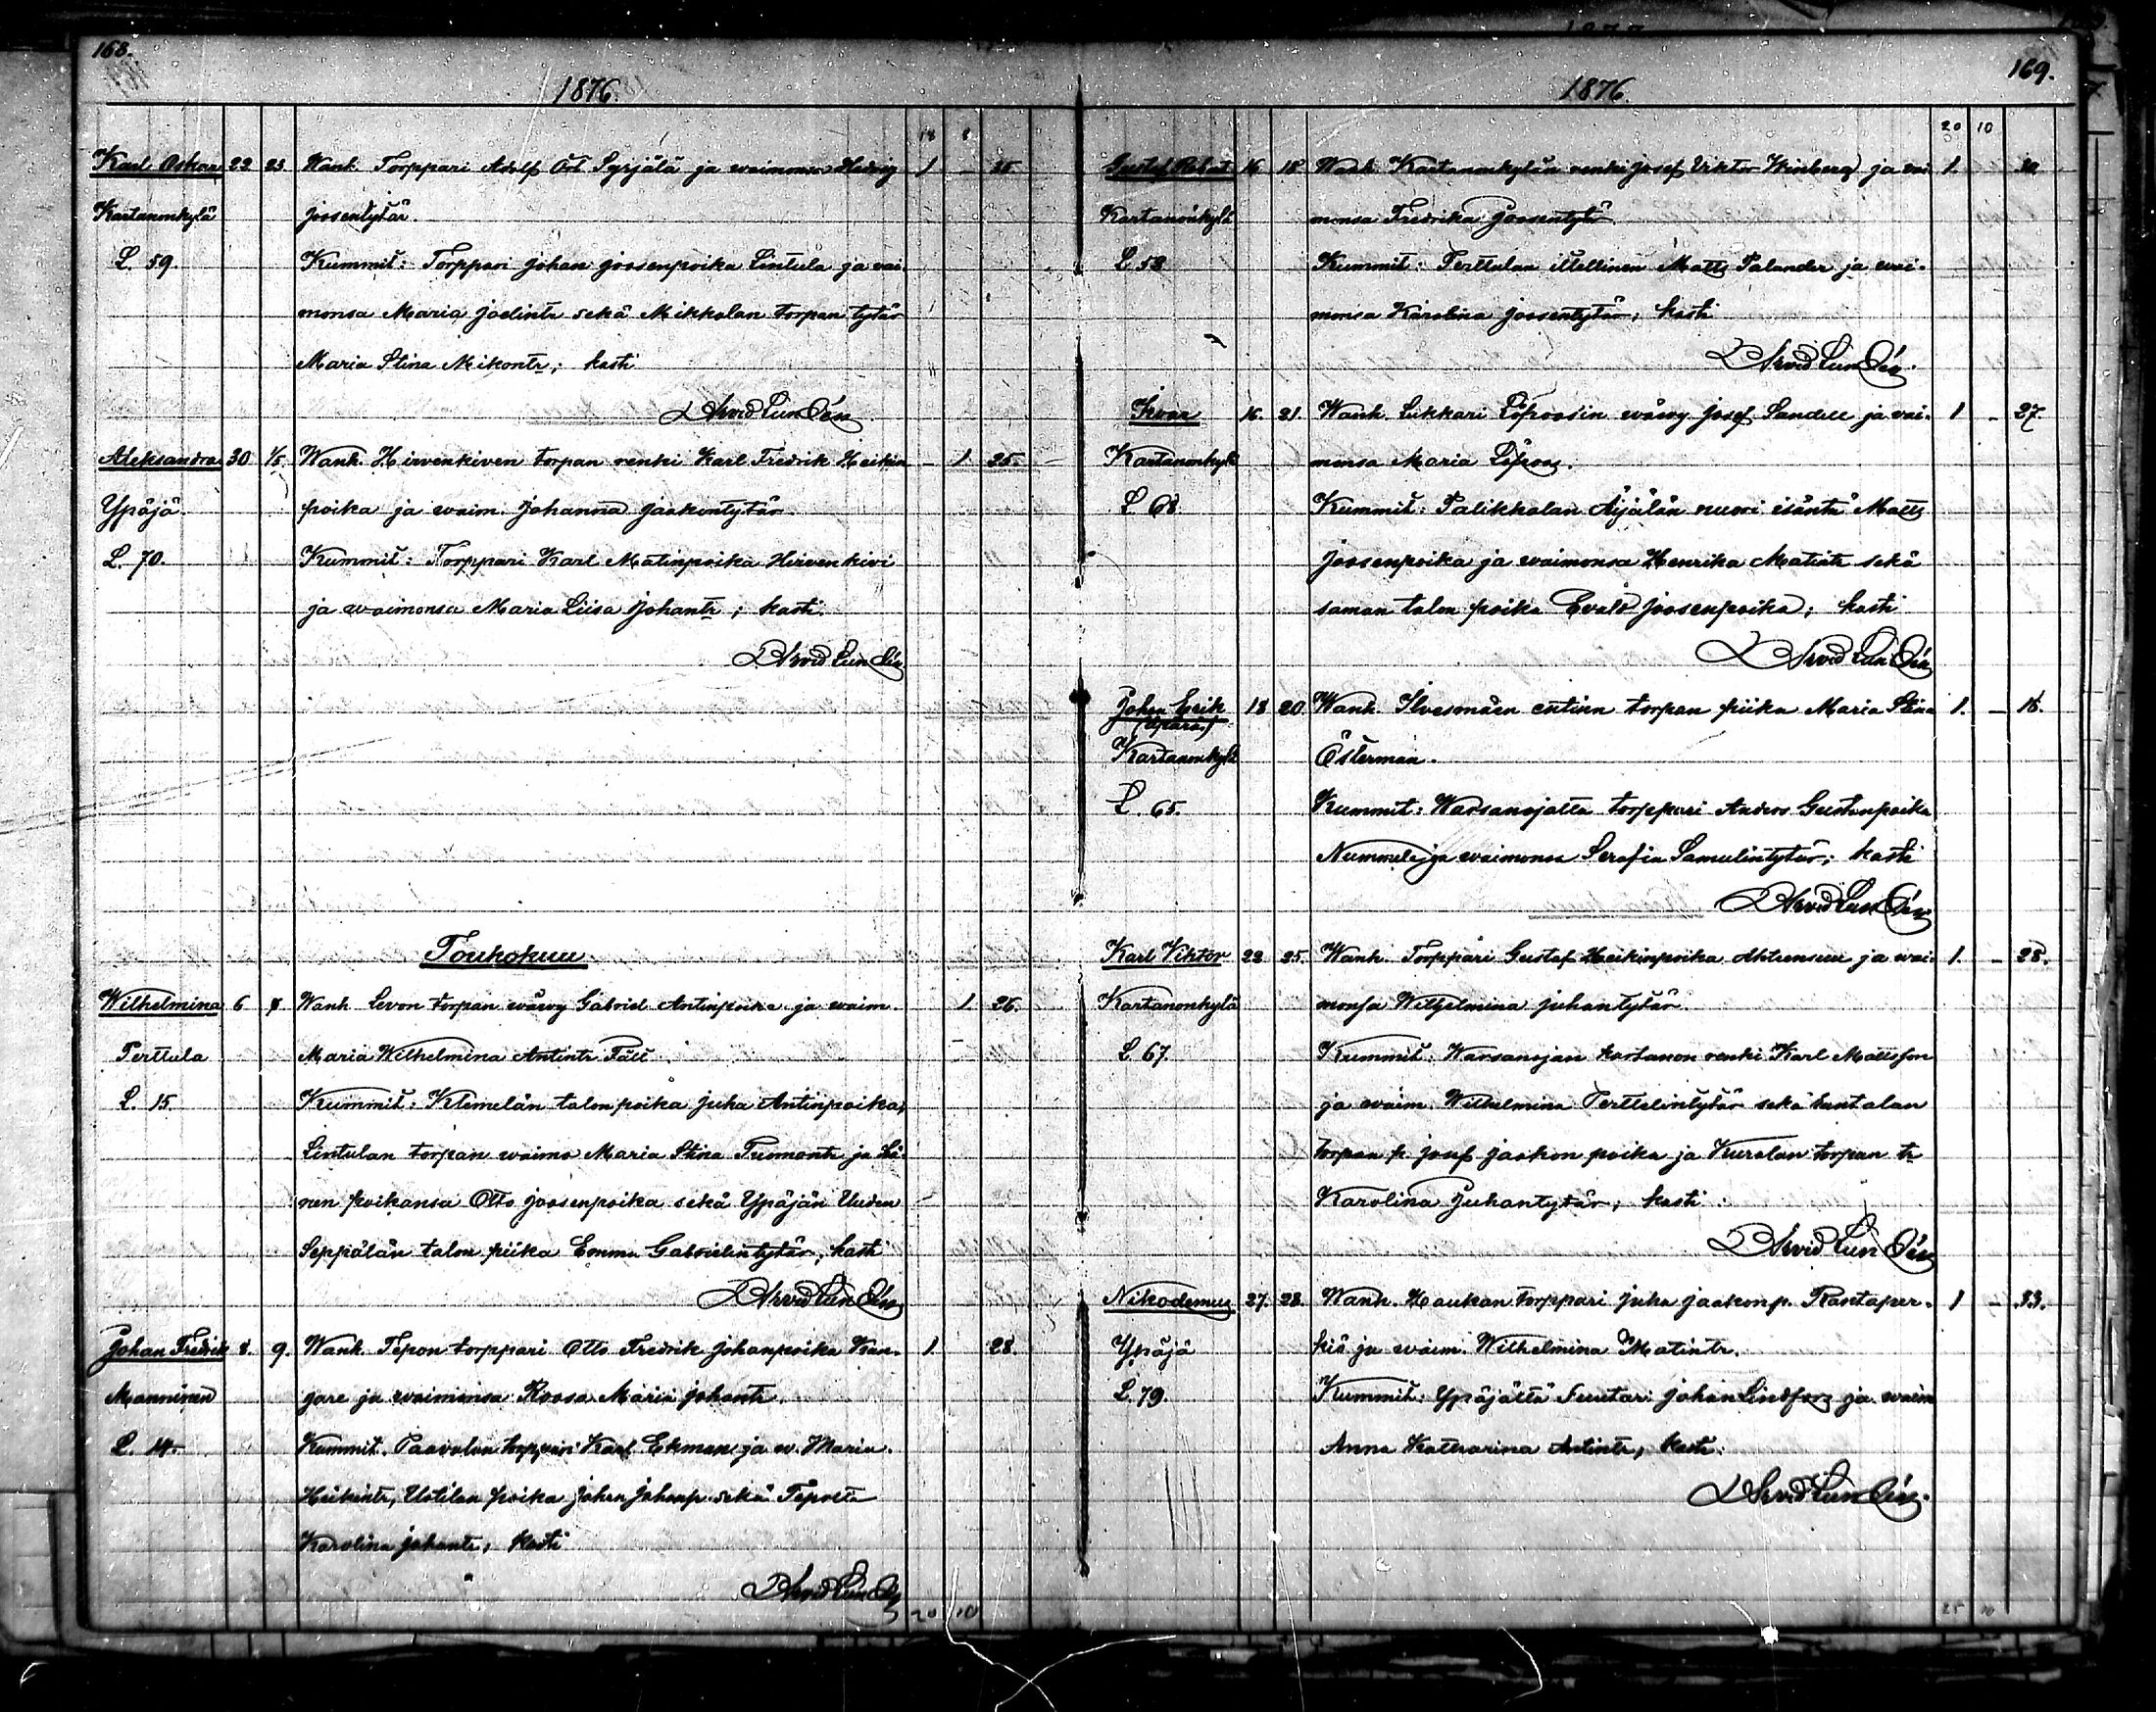 168.
1876.
18 8
Karl Oskar 22 23 Wanh. Torppari Adolf Syrjälä ja waimonsa Hedvig 1 –
Kartanonkylä Joosentytär
L. 59. Kummit: Torppari Johan Joosenpoika Lintula ja vai-
monsa Maria sekä Mikkolan torpan tytär
Maria Stina Mikontr; kasti
Arvid Lundén
Aleksandra 30 1/5. Wanh. Hirvenkiven torpan renki Karl Fredrik Heikin – 1. 25.
Ypäjä. poika ja waim. Johanna Jaakontytär.
L. 70. Kummit: Torppari Karl Matinpoika Hirvenkivi
ja waimonsa Maria Liisa Johantr; kasti.
Arvid Lundén
Toukokuu
Wilhelmina 6 8 Wanh. Levon torpan wävy Gabriel Antinpoika ja waim. 1. 26.
Perttula Maria Wilhelmina Antintr Fält
L. 15. Kummit: Klemelän talon poika Juha Antinpoika,
Lintulan torpan waimo Maria Stina Tuomontr ja
nen poikansa Otto Joosenpoika sekä Ypäjän Uuden
Seppälän talon piika Emma Gabrielintytär; kasti
Arvid Lundén
Johan Fredrik 8. 9. Wanh. Tepon torppari Otto Fredrik Johanpoika 1 28.
Manninen gare ja waimonsa Roosa Maria Johantr.
L. 14. Kummit. Paavolan torppari Karl Ekman ja w. Maria
Heikintr, Uotilan poika Johan Johanp. sekä
Karolina Johantr; kasti
Arvid Lundén
20 10
169.
1876.
20 10
Gustaf 16 18 Wanh. Kartanonkylän renki Josef Viktor Winberg ja vai- 1.
Kartanonkylä monsa Fredrika Joosentytär
L. 58 Kummit: Perttulan itellinen Matts Palander ja wai-
monsa Karolina Joosentytär; kasti
Arvid Lundén.
Ivar 16. 21. Wanh. Lukkari Löfroosin wävy Josef Sandell ja vai- 1 – 27.
Kartanonkylä monsa Maria Löfroos.
L. 68. Kummit: Palikkalan Äijälän nuori isäntä Matts
Joosenpoika ja waimonsa Henrika Matintr sekä
saman talon poika Evald Joosenpoika; kasti
Arvid Lundén
Johan Erik 18 20. Wanh. Ilvesmäen entinen torpan piika Maria Stina 1. –
(äpärä)
Kartanonkylä Österman.
L. 65. Kummit: Warsanojalta torppari Anders Gustanpoika
Nummela ja waimonsa Serafia Samulintytär; kasti
Arvid Lundén
Karl Viktor 22 25. Wanh. Torppari Gustaf Heikinpoika Ahtrensuu ja wai- 1. – 28.
Kartanonkylä monsa Wilhelmina Juhantytär.
L. 67. Kummit: Warsanojan kartanon renki Karl Mattsson
ja waim. Wilhelmina Perttelintytär sekä
torpan p. Josef Jaakon poika ja Kuralan torpan tr
Karolina Juhantytär; kasti.
Arvid Lundén
Nikodemus 27. 28. Wanh. Haukan torppari Juha Jaakonp. Rantaper- 1 – 33.
Ypäjä kiö ja waim. Wilhelmina Matintr.
L. 79. Kummit: Ypäjältä Suutari Johan Lindfors ja waim
Anna Katharina Antintr; kasti.
Arvid Lundén.
25 10